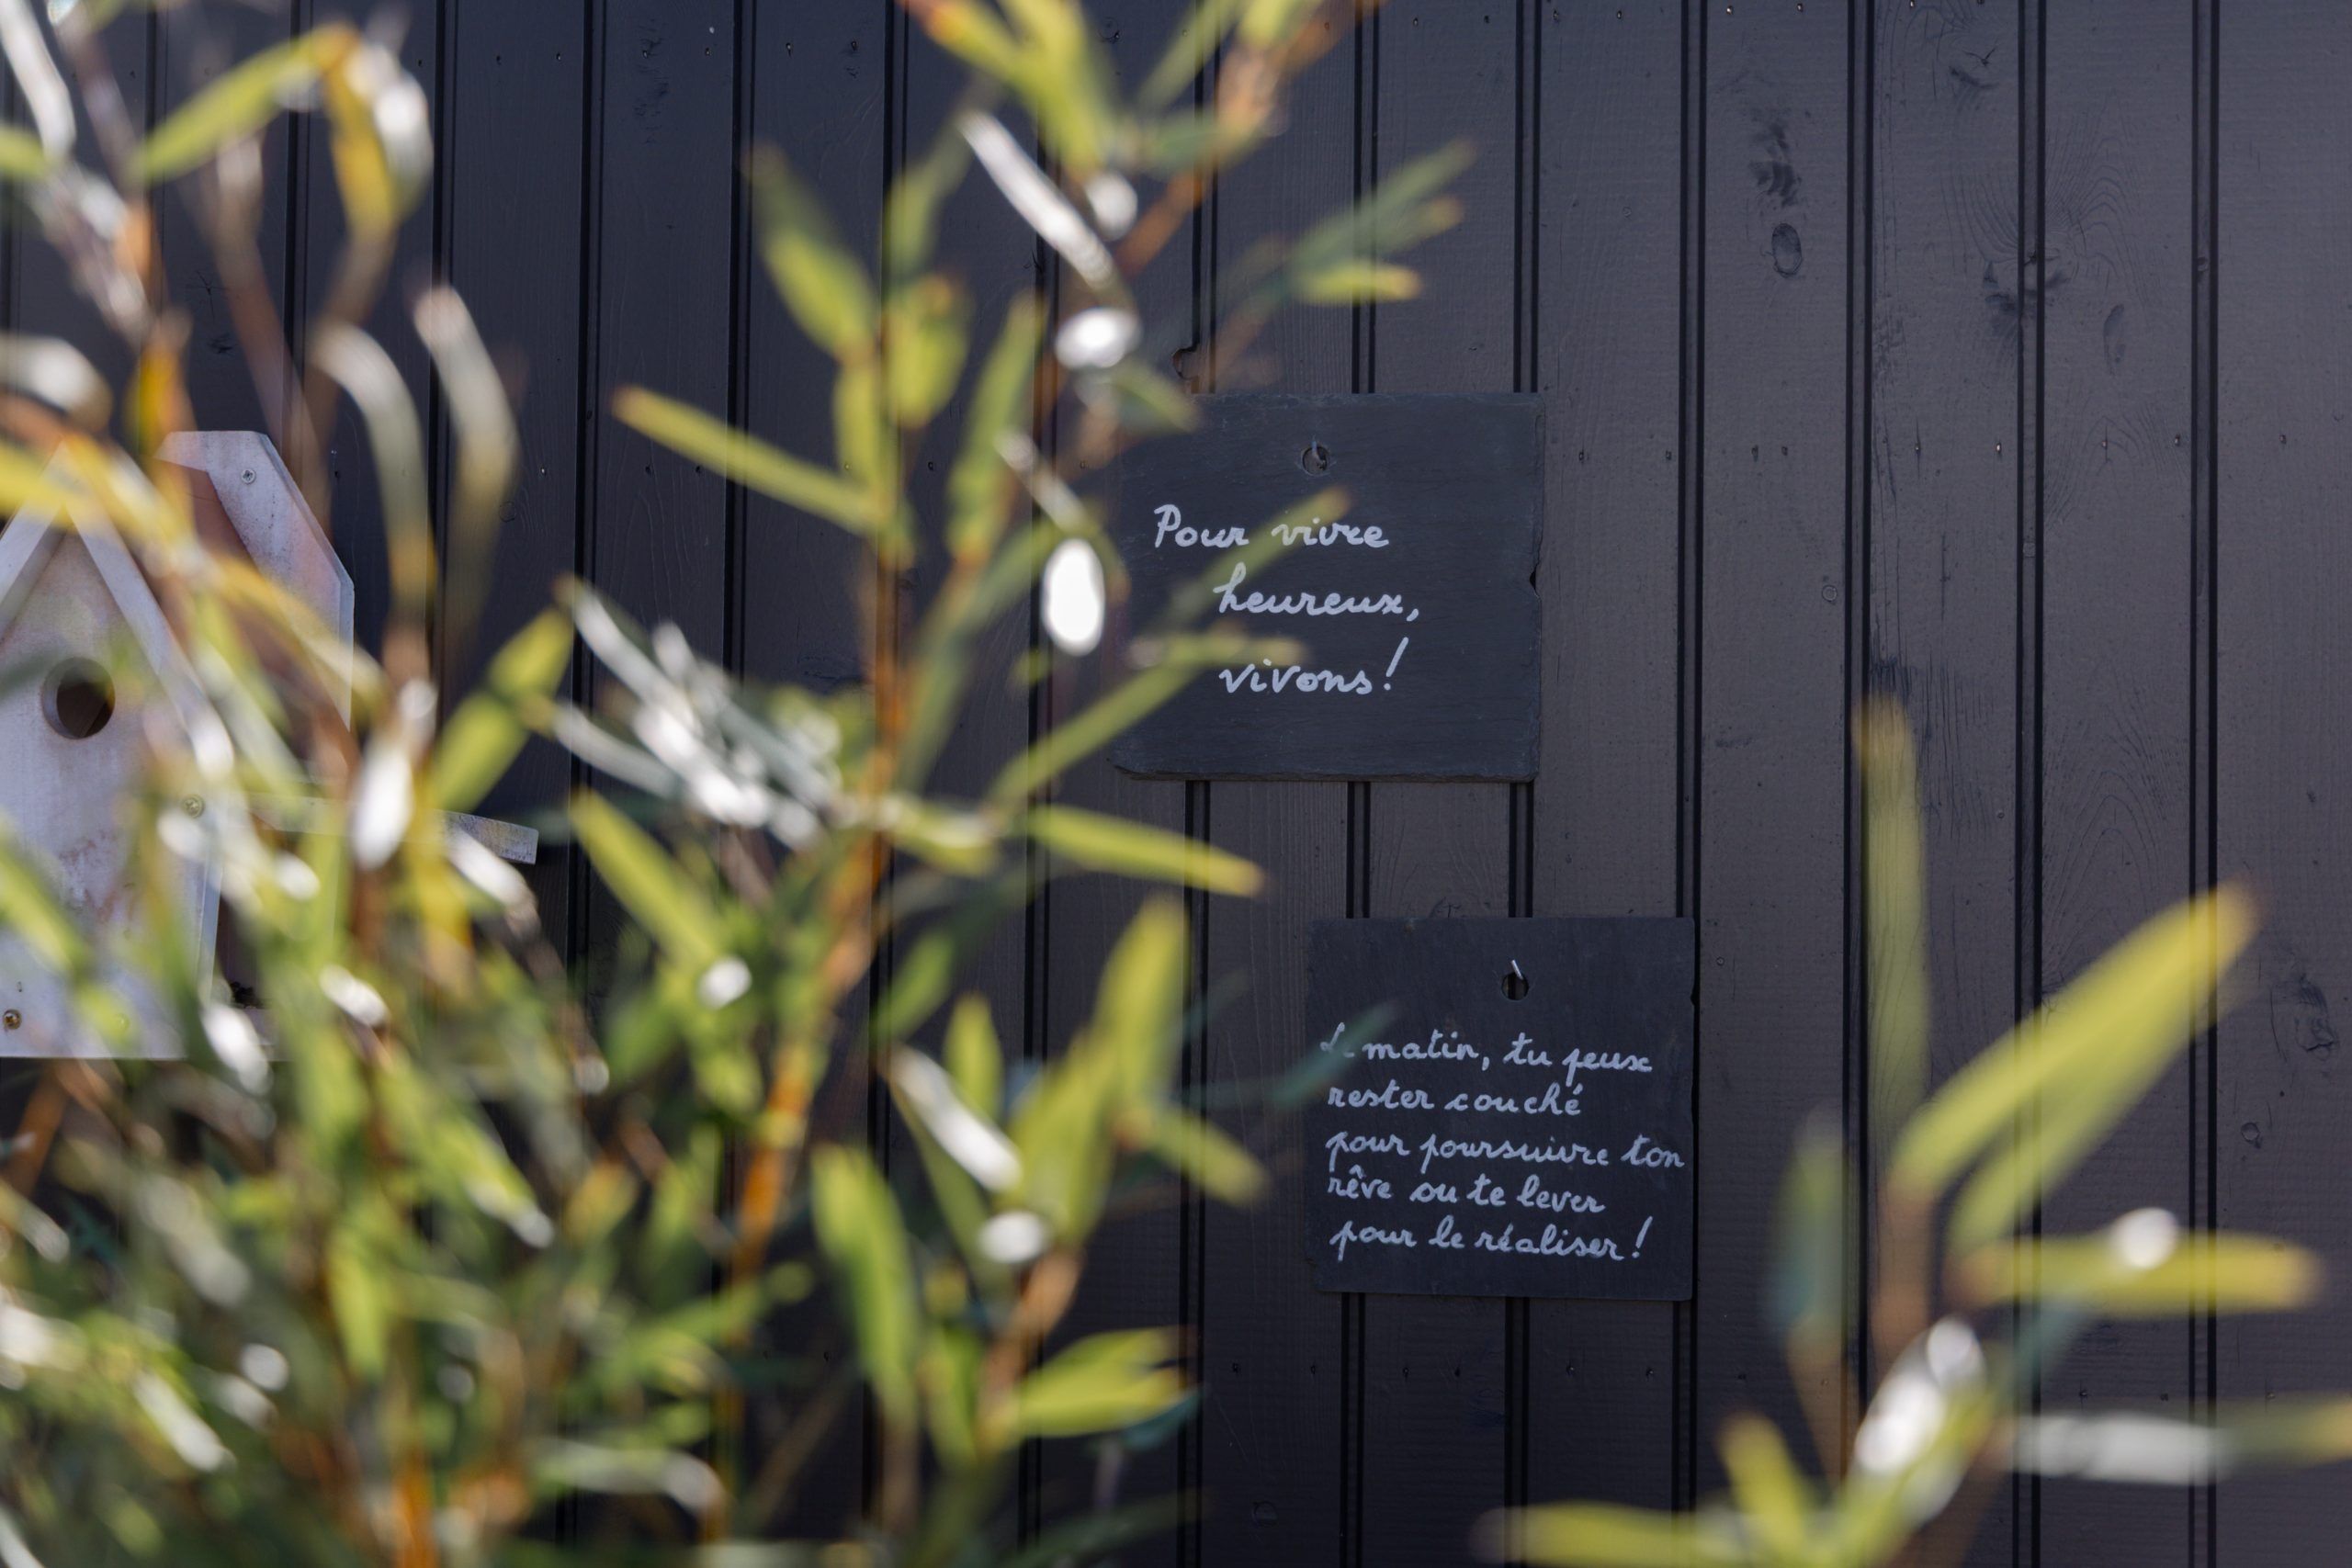 Pour vivre
heureux,
vivons!
Le matin, tu peux
rester couché
pour poursuivre ton
rêve ou te lever
pour le réaliser!